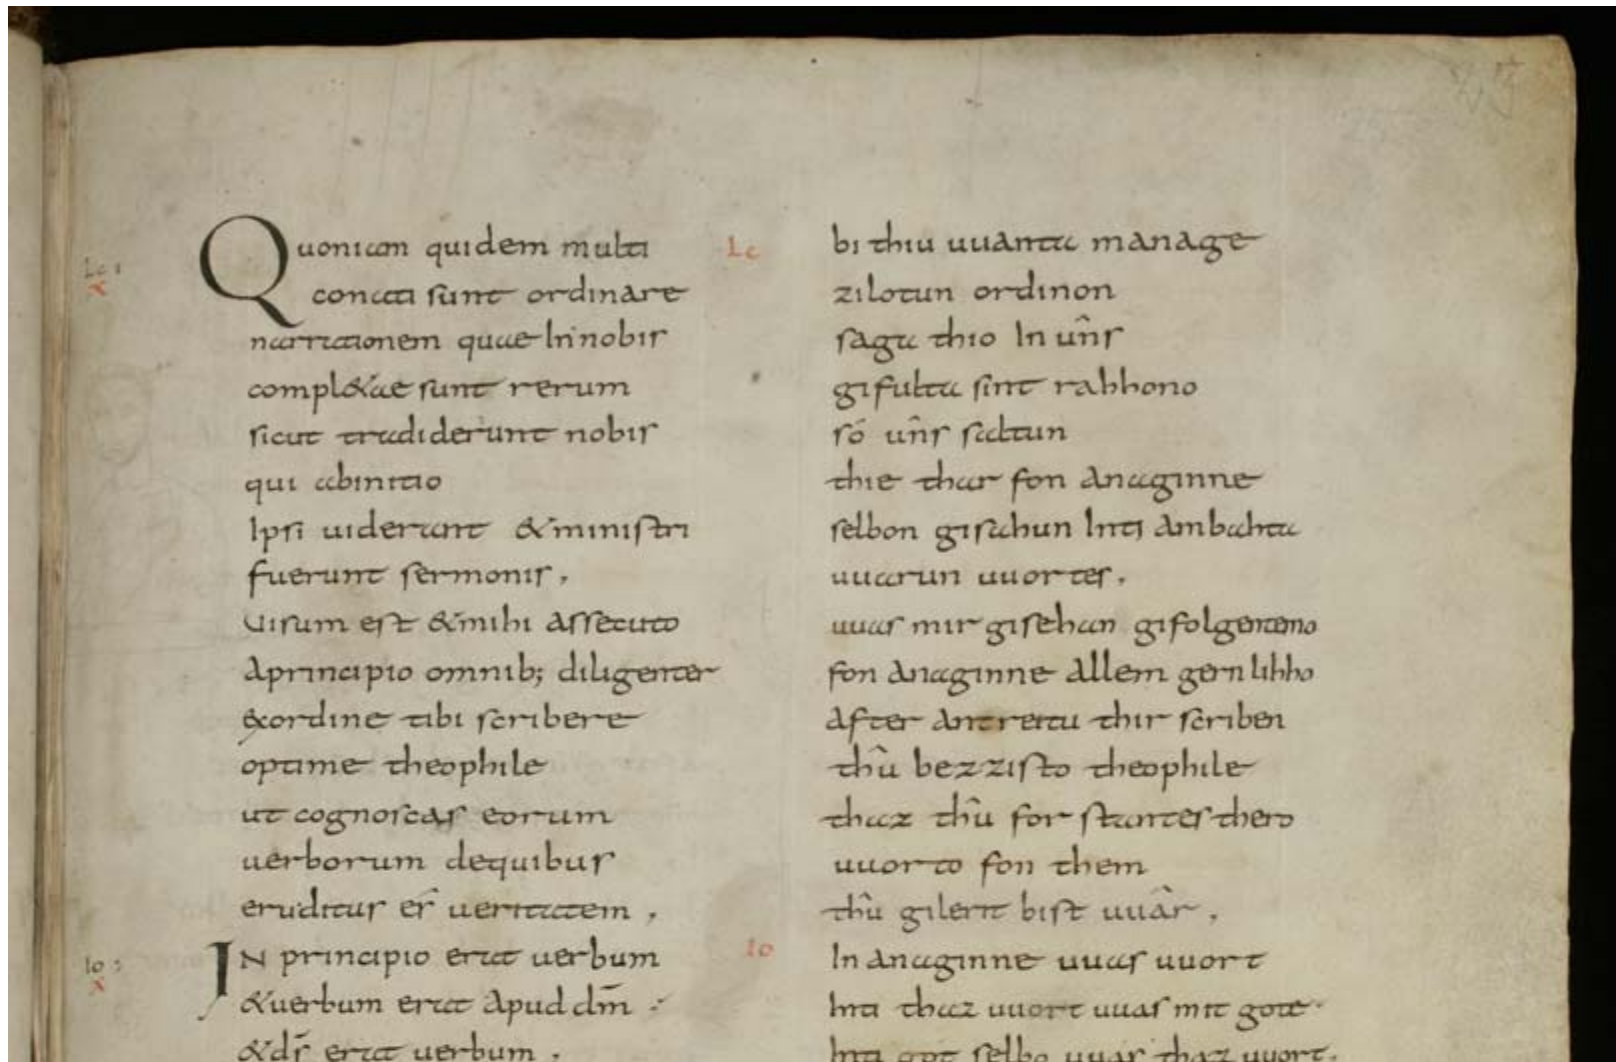 Lc:
X
Quoniam quidem multi
conati sunt ordinare
narrationem quae In nobis
compl&ae sunt rerum
sicut tradiderunt nobis
qui abinitio
Ipsi uiderunt &ministri
fuerunt sermonis,
Uisum est &mihi assecuto
aprincipio omnib; diligenter
exordine tibi scribere
optime theophile
ut cognoscas eorum
uerborum dequibus
eruditus es̄ ueritatem,
Io:
X
IN principio erat uerbum
&uerbum erat apud dm̄
&ds̄ erat uerbum.
Lc
bi thiu uuanta manage
zilotun ordinon
saga thio In ûns
gifulta sint rahhono
só ûns saltun
thie thar fon anaginne
selbon gisahun Inti ambahta
uuarun uuortes.
uuas mir gisehan gifolgentemo
fon anaginne allem gernlihho
after antreitu thir scriben
thû bezzisto theophile
thaz thû forstantes thero
uuorto fon them
thû gilerit bist uuâr,
Io
In anaginne uuas uuort
Inti thaz uuort uuas mit gote
Inti got selbo uuas thaz uuort.